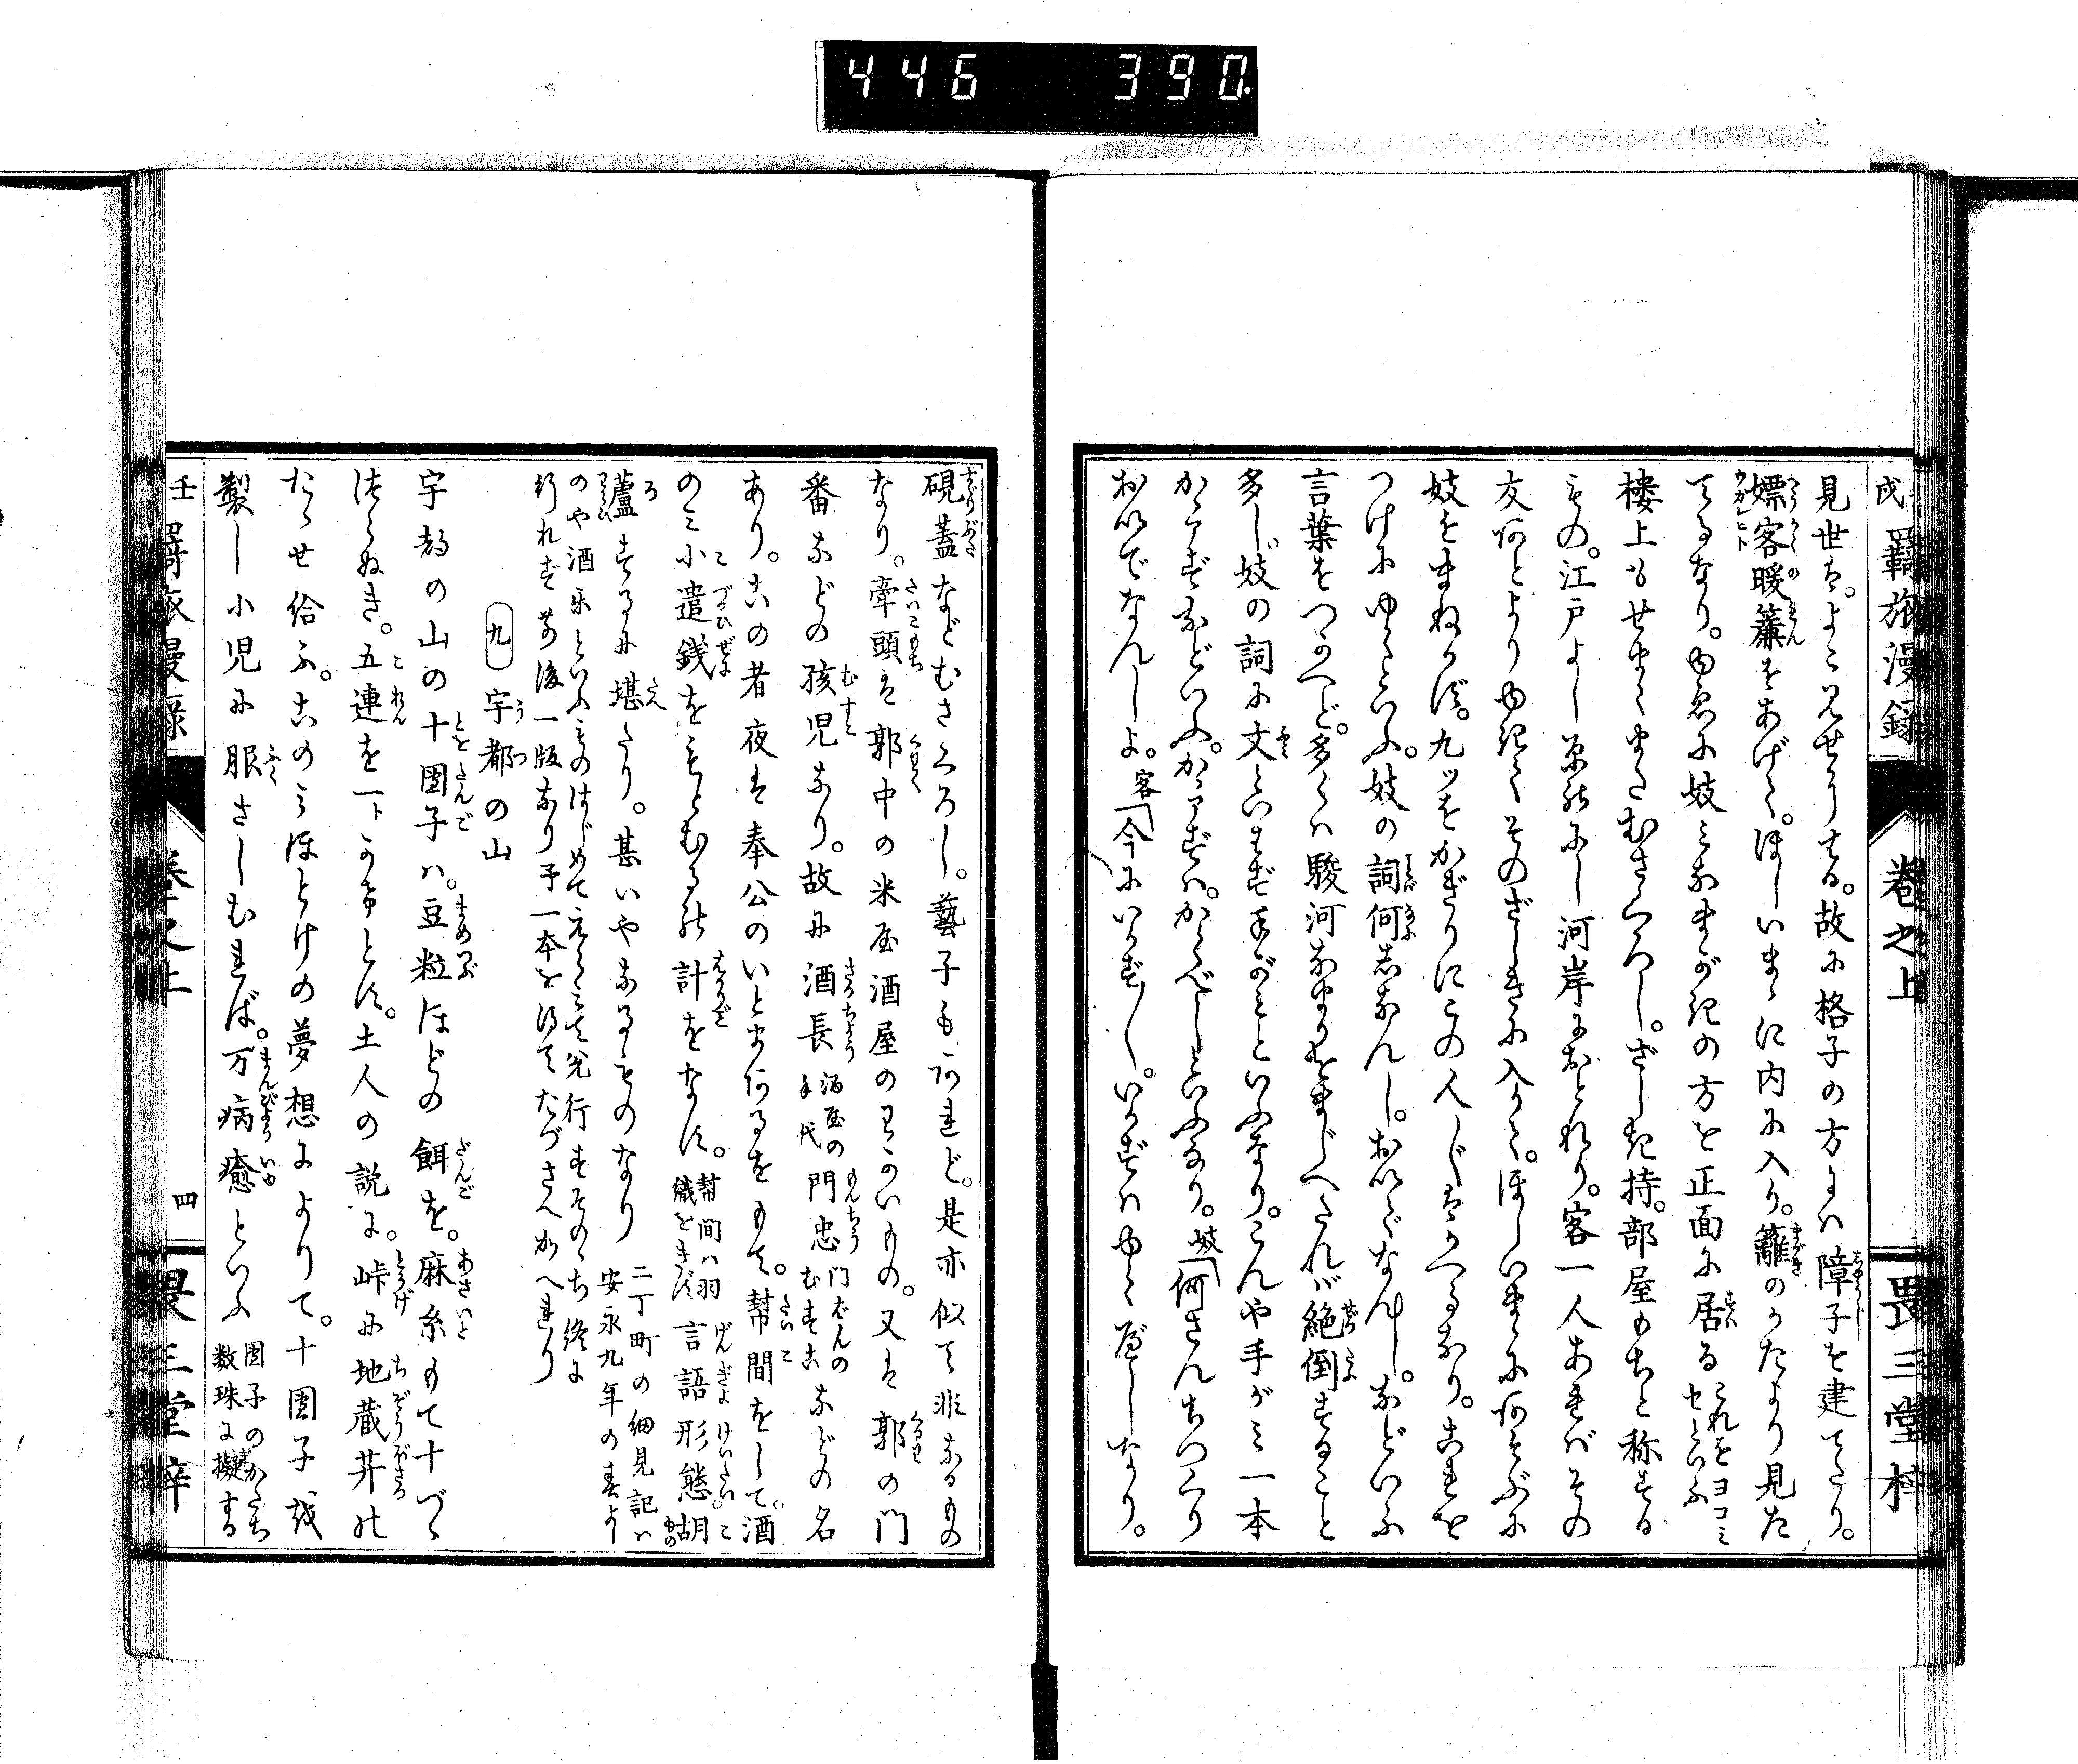 446 390
壬戌羇旅漫録 巻之上 畏三堂梓
見世は。よこ見せ也。故に格子の方には障子を建てり。
嫖客暖簾をあげて。ほしいまゝに内に入り。籬のかたより見た
てるなり。ゆゑに妓みなまがきの方を正面に居る これをヨコミセといふ
楼上もせまくまたむさくろし。ざしき持。部屋もちと称する
もの。江戸よし原にし河岸におとれり。客一人あればその
友何とよりゆきてそのざしきに入りて。ほしいまゝにあそぶに
妓をまねかず。九ツをかぎりにこの人〴〵はかへるなり。これを
つけにゆくといふ。妓の詞何しなんし。おいでなんし。などいふ
言葉をつかへど。多くは駿河なまりをまじへたれば絶倒すること
多し。妓の詞に文といはず手がみといふなり。こんや手がミ一本
かゝずなどいふ。かゝずは。かくべしといふなり。妓「何さんちつくり
おいでなんしよ。客「今にいかず〳〵。いかずはゆくべしなり。
硯蓋などむさくろし。藝子もあれど。是亦似て非なるもの
なり。牽頭は郭中の米屋酒屋のわかいもの。又は郭の門
番などの孩児なり。故に酒長 酒屋の手代 門忠 門ばんのむすこ などの名
あり。この者夜は奉公のいとまあるをもて。幇間をして。酒
のみ小遣銭をもとむる計をなす。幇間は羽織をきず 言語形態胡
蘆するに堪たり。甚いやなるものなり 二丁町の細見記は安永九年の春より
のや酒楽といふものはじめて えらみて発行すそのゝち終に
行れず前後一版なり予一本を得てたづさへかへれり
九 宇都の山
宇都の山の十團子は。豆粒ほどの餌を。麻糸もて十づゝ
つらぬき。五連を一トかけとす。土人の説に。峠に地蔵井の
たゝせ給ふ。このみほとけの夢想によりて。十團子を
製し小児に服さしむれば。万病癒といふ 團子のかたち数珠に擬する
壬戌羇旅漫録 巻之上 四 畏三堂梓